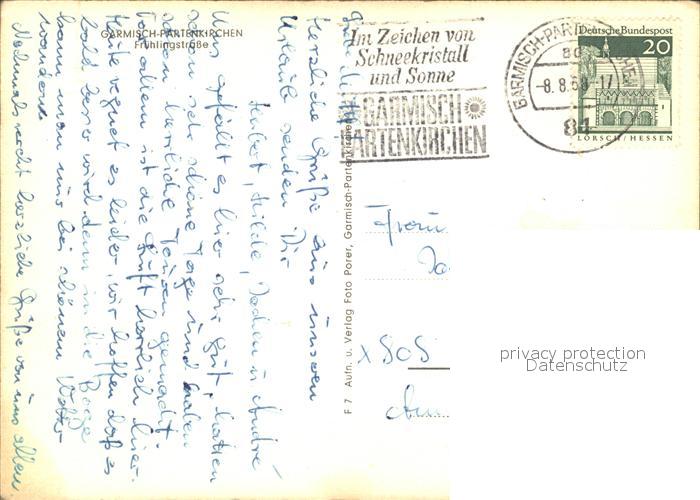 GARMISCH-PARTENKIRCHEN
Frühlingstraße
Im Zeichen von
Schneekristall
und Sonne
GARMISCH
PARTENKIRCHEN
GARMISCH-PARTENKIRCHEN
-8.8.68-17
81
Deutsche Bundespost
20
LORSCH/HESSEN
Herzliche Grüße aus unserem
Urlaub senden Dir
Hubert, Hilde, Jochen u. André
Uns gefällt es hier sehr gut, hatten
schon sehr schöne Tage und haben
schon herrliche Touren gemacht.
Vor allem ist die Luft herrlich hier.
Heute regnet es leider, wir hoffen daß es
bald besser wird denn in die Berge
kann man nur bei schönem Wetter
wandern.
Nochmals recht herzliche Grüße von uns allen.
F 7 Aufn. u. Verlag Foto Porer, Garmisch-Partenkirchen
Frau
x 505
privacy protection
Datenschutz